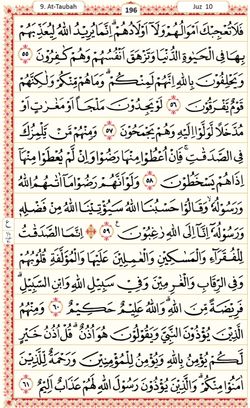 9. At-Taubah 196 Juz 10
فَلَا تُعْجِبْكَ اَمْوَالُهُمْ وَلَآ اَوْلَادُهُمْ ۗاِنَّمَا يُرِيْدُ اللّٰهُ لِيُعَذِّبَهُمْ
بِهَا فِى الْحَيٰوةِ الدُّنْيَا وَتَزْهَقَ اَنْفُسُهُمْ وَهُمْ كٰفِرُوْنَ ٥٥
وَيَحْلِفُوْنَ بِاللّٰهِ اِنَّهُمْ لَمِنْكُمْۗ وَمَا هُمْ مِّنْكُمْ وَلٰكِنَّهُمْ
قَوْمٌ يَّفْرَقُوْنَ ٥٦ لَوْ يَجِدُوْنَ مَلْجَاً اَوْ مَغٰرٰتٍ اَوْ
مُدَّخَلًا لَّوَلَّوْا اِلَيْهِ وَهُمْ يَجْمَحُوْنَ ٥٧ وَمِنْهُمْ مَّنْ يَّلْمِزُكَ
فِى الصَّدَقٰتِۚ فَاِنْ اُعْطُوْا مِنْهَا رَضُوْا وَاِنْ لَّمْ يُعْطَوْا مِنْهَآ
اِذَا هُمْ يَسْخَطُوْنَ ٥٨ وَلَوْ اَنَّهُمْ رَضُوْا مَآ اٰتٰىهُمُ اللّٰهُ
وَرَسُوْلُهٗۙ وَقَالُوْا حَسْبُنَا اللّٰهُ سَيُؤْتِيْنَا اللّٰهُ مِنْ فَضْلِهٖ
وَرَسُوْلُهٗٓ اِنَّآ اِلَى اللّٰهِ رٰغِبُوْنَ ٥٩ اِنَّمَا الصَّدَقٰتُ
لِلْفُقَرَاۤءِ وَالْمَسٰكِيْنِ وَالْعٰمِلِيْنَ عَلَيْهَا وَالْمُؤَلَّفَةِ قُلُوْبُهُمْ
وَفِى الرِّقَابِ وَالْغٰرِمِيْنَ وَفِيْ سَبِيْلِ اللّٰهِ وَابْنِ السَّبِيْلِۗ
فَرِيْضَةً مِّنَ اللّٰهِ ۗوَاللّٰهُ عَلِيْمٌ حَكِيْمٌ ٦٠ وَمِنْهُمُ
الَّذِيْنَ يُؤْذُوْنَ النَّبِيَّ وَيَقُوْلُوْنَ هُوَ اُذُنٌ ۗقُلْ اُذُنُ خَيْرٍ
لَّكُمْ يُؤْمِنُ بِاللّٰهِ وَيُؤْمِنُ لِلْمُؤْمِنِيْنَ وَرَحْمَةٌ لِّلَّذِيْنَ
اٰمَنُوْا مِنْكُمْۗ وَالَّذِيْنَ يُؤْذُوْنَ رَسُوْلَ اللّٰهِ لَهُمْ عَذَابٌ اَلِيْمٌ ٦١